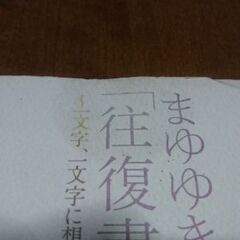 まゆゆき
「往復書
一文字、一文字に相